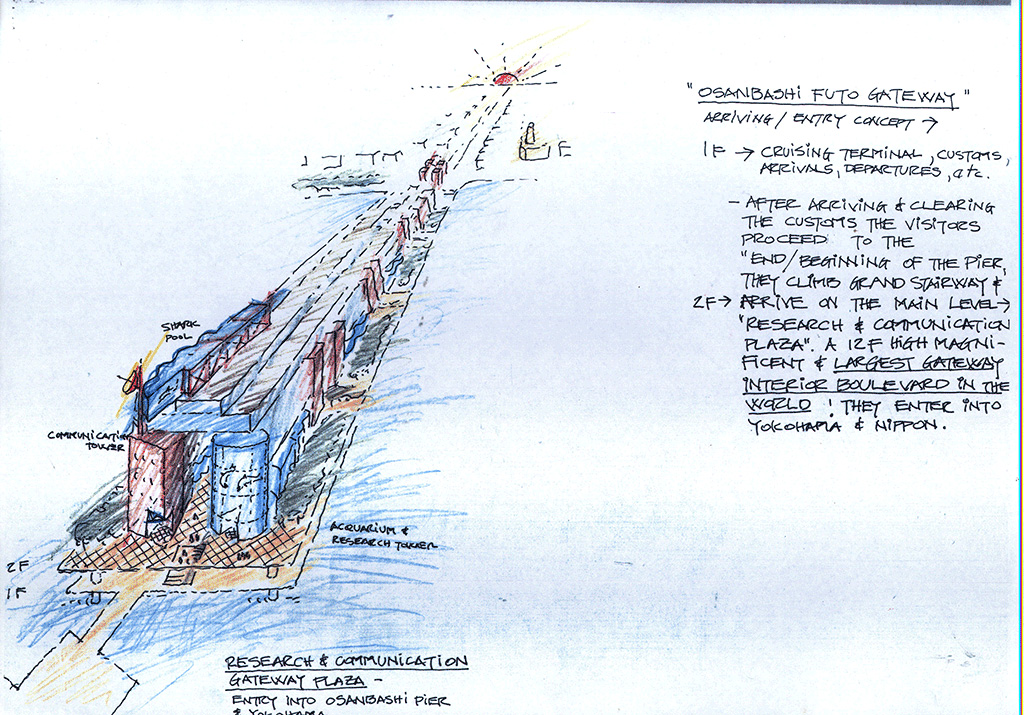 "OSANBASHI FUTO GATEWAY"
ARRIVING / ENTRY CONCEPT →
1F → CRUISING TERMINAL, CUSTOMS,
ARRIVALS, DEPARTURES, etc.
- AFTER ARRIVING & CLEARING
THE CUSTOMS THE VISITORS
PROCEED TO THE
"END/BEGINNING OF THE PIER,
THEY CLIMB GRAND STAIRWAY &
2F → ARRIVE ON THE MAIN LEVEL →
"RESEARCH & COMMUNICATION
PLAZA". A 12F HIGH MAGNI-
FICENT & LARGEST GATEWAY
INTERIOR BOULEVARD IN THE
WORLD! THEY ENTER INTO
YOKOHAMA & NIPPON.
SHARK
POOL
COMMUNICATION
TOWER
ACQUARIUM &
RESEARCH TOWER
2F
1F
RESEARCH & COMMUNICATION
GATEWAY PLAZA -
ENTRY INTO OSANBASHI PIER
& YOKOHAMA